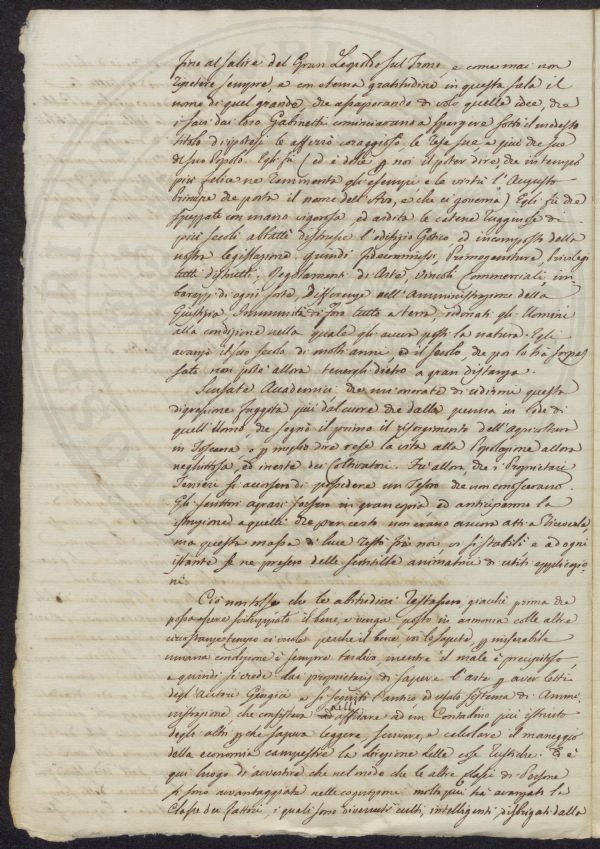 fino al salire del Gran Leopoldo sul Trono, e come mai non
ripetere sempre, e con eterna gratitudine in questa sala il
nome di quel grande, che assaporando di volo quelle idee, che
i savi dai loro Gabinetti cominciarono a spargere sotto il modesto
titolo di ipotesi le afferrò coraggioso, le rese sue a pro del suo
di suo Popolo. Egli fù (ed è dolce p noi il poter dire, che in tempo
più felice ne rammenta gli esempi e le virtù l'Augusto
Principe che porta il nome dell'Avo, e che ci governa) Egli fù che
spezzate con mano vigorosa ed ardita le catene rugginose di
più secoli abbatté distrusse l'edifizio Gotico ed incomposto della
nostra legislazione quindi Fidecommissi, Primogeniture, privilegi
tutti distrutti, Regolamenti di Arte, vincoli Commerciali, im
barazzi di ogni sorta, differenze nell'Amministrazione della
Giustizia, Immunità di Foro tutto a terra, ridonati gli Uomini
alla condizione nella quale gli aveva posti la natura. Egli
avanzò il suo secolo di molti anni, ed il secolo, che poi lo ha sorpas
sato non potè allora tenergli dietro a gran distanza.
Scusate Accademici che un'onorate di udirmi questa
digressione fuggita più dal cuore che dalla penna in lode di
quell'Uomo che segnò il primo il risorgimento dell'Agricoltura
in Toscana o p meglio dire rese la vita alla Popolazione allora
neghittosa, ed inerte dei Coltivatori. Fu allora, che i Proprietari
Terrieri si accorsero di possedere un Tesoro che non conoscevano.
Gli scrittori agrari furono in gran copia ed anticiparono la
istruzione a quelli che per certo non erano ancora atti a riceverla
ma questa massa di luce restò frà noi, vi si stabilì e ad ogni
istante se ne presero delle scintille animatrici di utili applicazio-
ni.
Ciò non tolse che le abitudini restassero, giacchè prima che
possa essere sviluppato il bene, e venga posto in armonia colle altre
circostanze tempo ci vuole perchè il bene, voi lo sapete, p miserabile
umana condizione è sempre tardivo, mentre il male è precipitoso,
e quindi si crede dai proprietari di sapere l'arte p aver letti
degl'Autori Georgici e si seguitò l'antico ed usato sistema di Ammi-
nistrazione, che consisteva nell'affidare ad un Contadino più istruito
degli altri p che sapeva leggere, scrivere, e calcolare il maneggio
della economia campestre la direzione delle cose rustiche. Ed è
qui luogo di avvertire che nel modo che le altre classi di Persone
si sono avvantaggiate nelle cognizioni molto più ha avanzato la
Classe dei Fattori, i quali sono divenuti culti, intelligenti disbrigati dalle